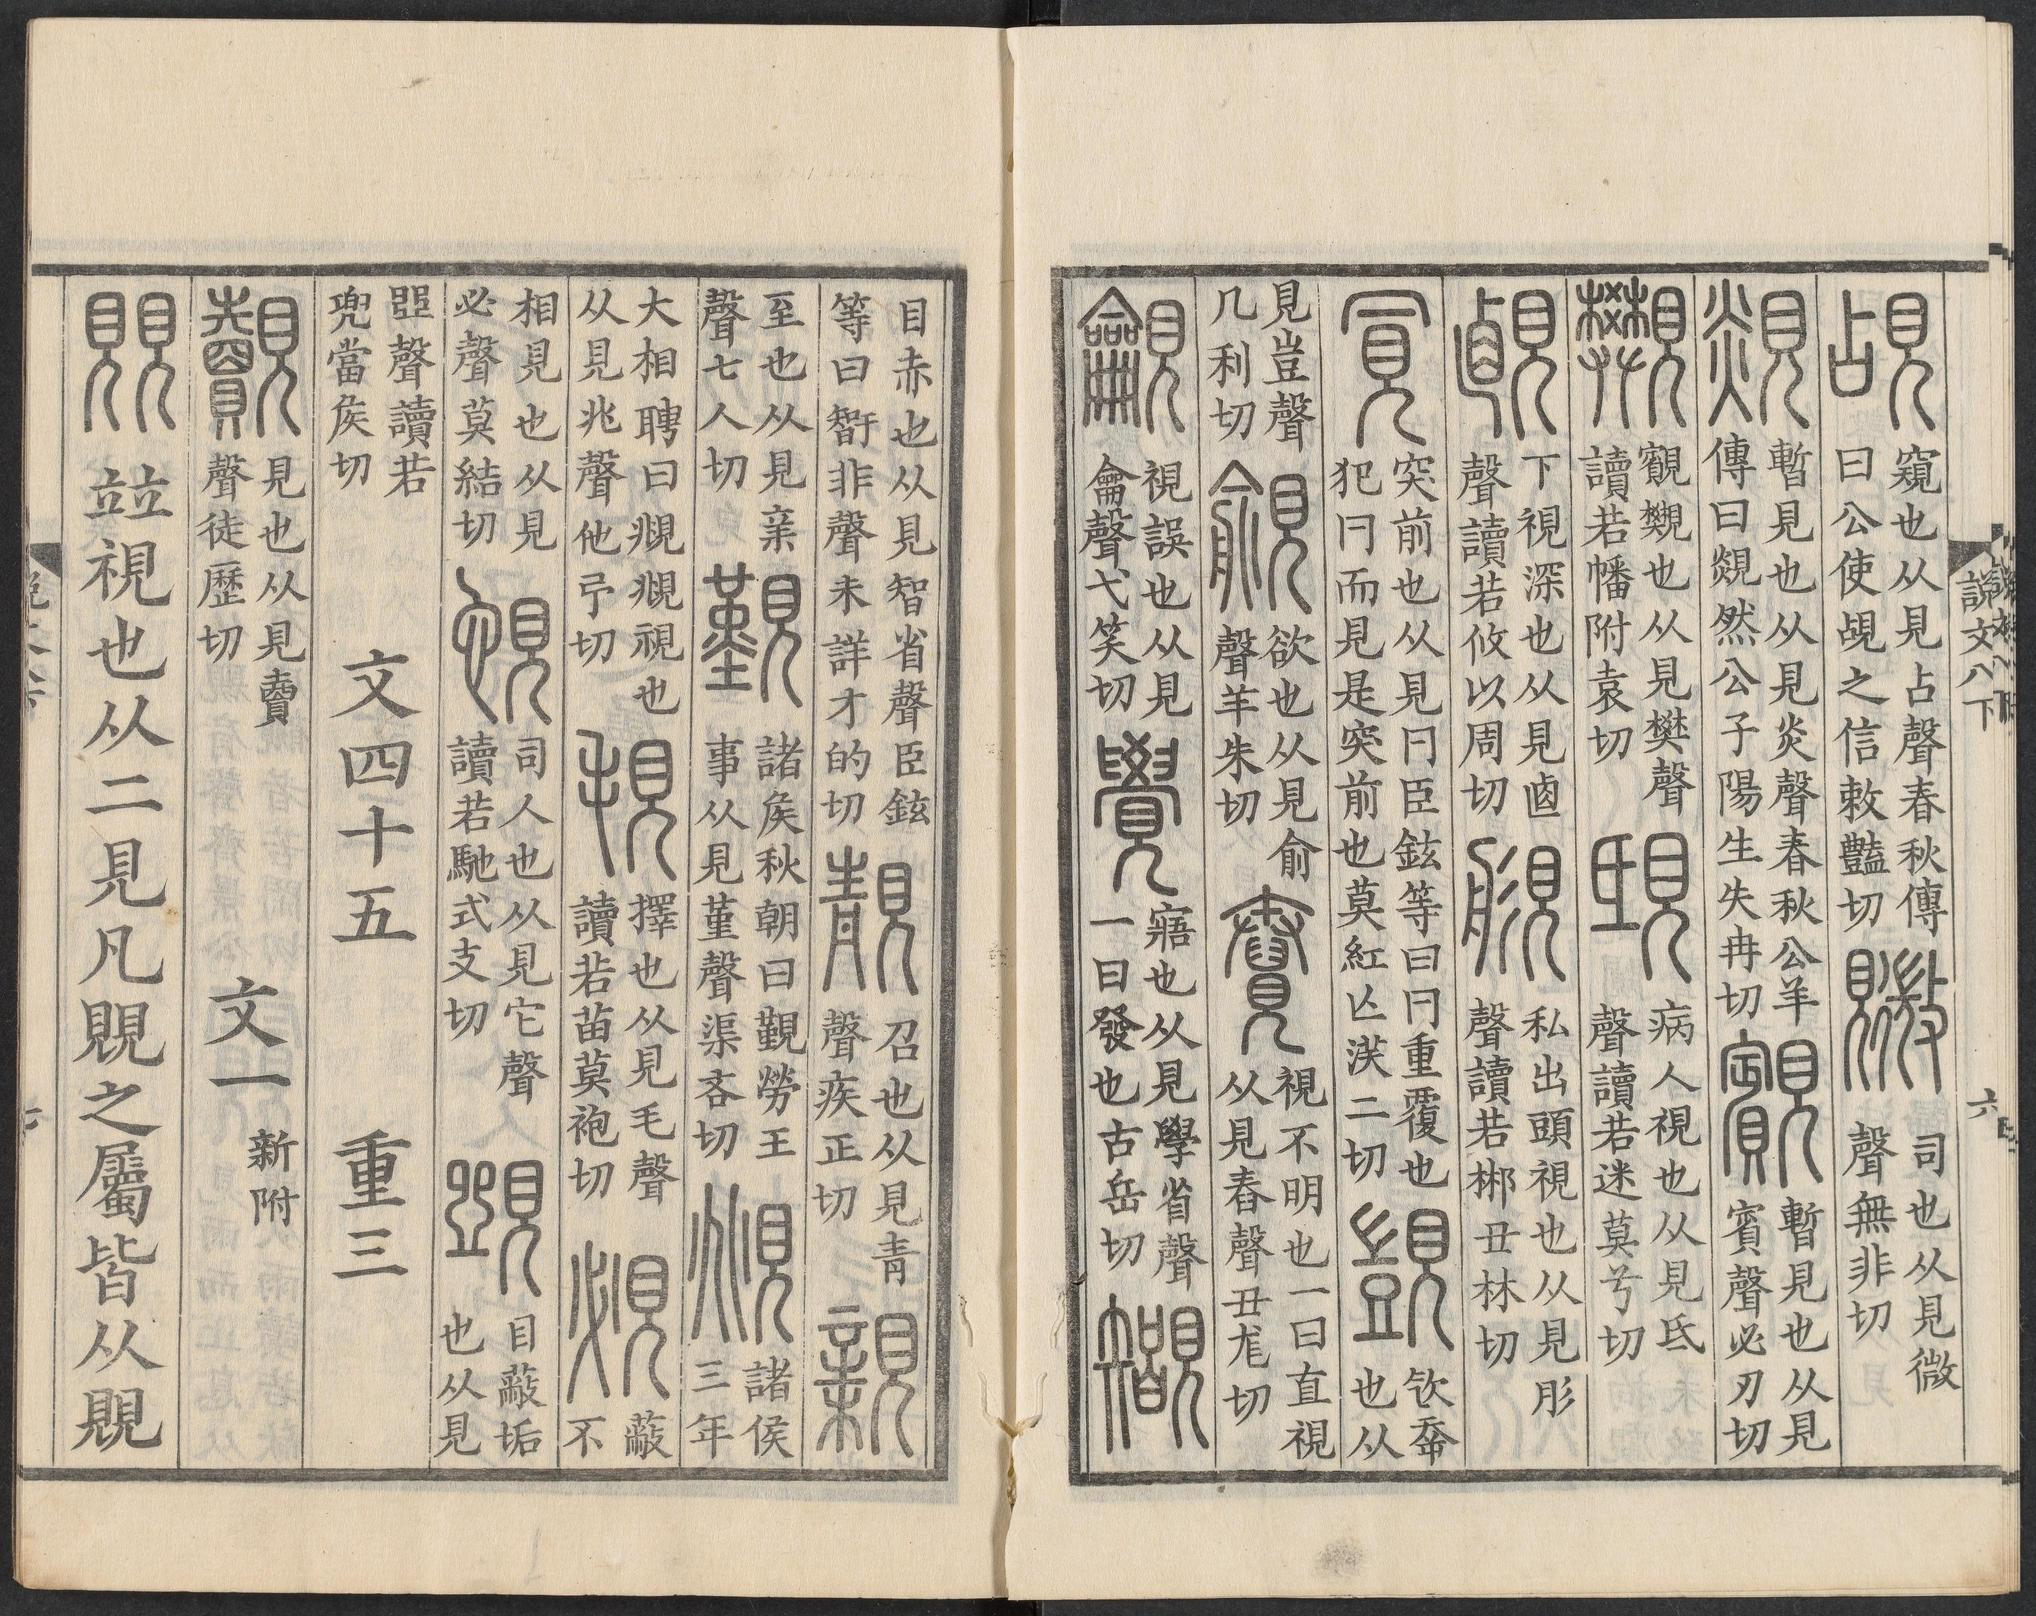 說文八下
六
覘 窺也从見占聲春秋傳曰公使覘之信敕豔切 覹 司也从見微聲無非切
覢 暫見也从見炎聲春秋公羊傳曰覢然公子陽生失冉切 覾 暫見也从見賓聲必刃切
覾也从見樊聲讀若幡附袁切 病人視也从見氐聲讀若迷莫兮切
下視深也从見卤聲讀若攸以周切 私出頭視也从見肜聲讀若郴丑林切
突前也从見冃臣鉉等曰冃重覆也犯冃而見是突前也莫紅亾渶二切 覬 㰟㚔也从
見豈聲几利切 覦 欲也从見俞聲羊朱切 視不明也一曰直視从見舂聲丑尨切
視誤也从見龠聲弋笑切 覺 寤也从見學省聲一曰發也古岳切
目赤也从見智省聲臣鉉等曰智非聲未詳才的切 靚 召也从見青聲疾正切 親
至也从見亲聲七人切 覲 諸矦秋朝曰覲勞王事从見堇聲渠吝切 覜 諸侯三年
大相聘曰覜覜視也从見兆聲他弔切 覒 擇也从見毛聲讀若苗莫袍切 覕 蔽不
相見也从見必聲莫結切 覗 司人也从見它聲讀若馳式支切 目蔽垢也从見
䀠聲讀若兜當矦切
文四十五 重三
覿 見也从見賣聲徒歷切 文一 新附
覞 竝視也从二見凡覞之屬皆从覞